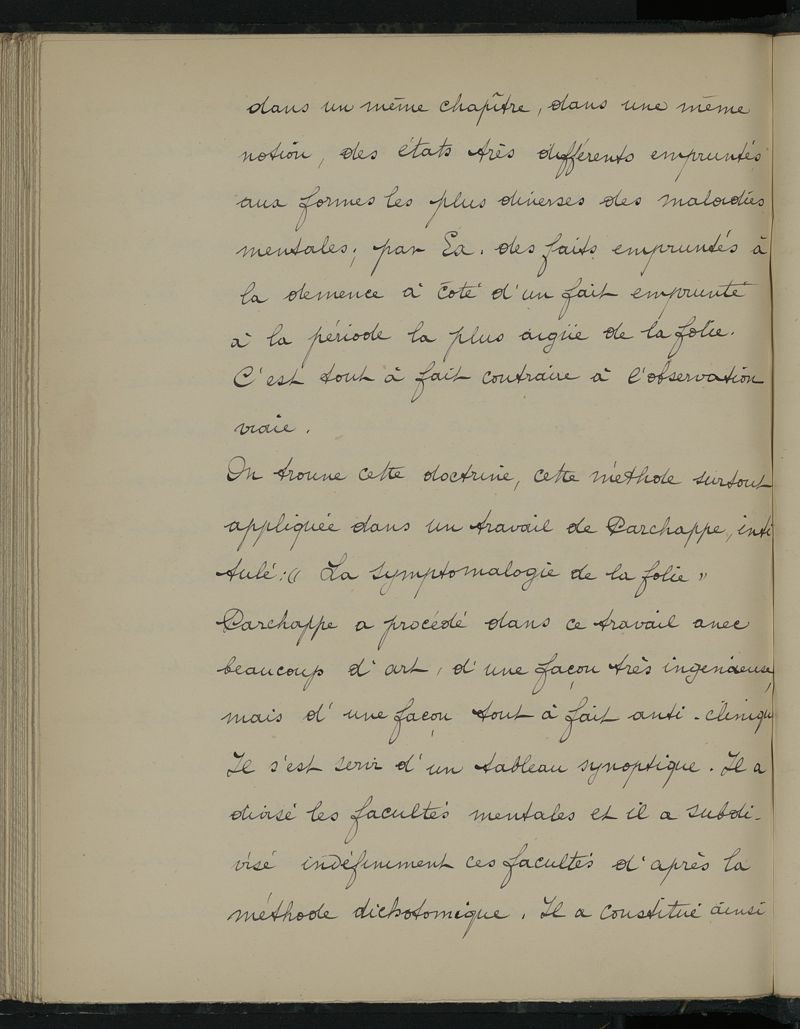 dans un même chapître, dans une même
notion, des états très différents empruntés
aux formes les plus diverses des maladies
mentales; par Ex. des faits empruntés à
la demence à coté d'un fait emprunté
à la période la plus aigüe de la folie.
C'est tout à fait contraire à l'observation
vraie.
On trouve cette doctrine, cette méthode surtout
appliquée dans un travail de Parchappe, inti
tulé: « La symptomalogie de la folie »
Parchappe a procédé dans ce travail avec
beaucoup d'art, d'une façon très ingenieuse,
mais d'une façon tout à fait anti-cliniqu
Il s'est servi d'un tableau synoptique. Il a
divisé les facultés mentales et il a subdi-
visé indéfiniment ces facultés d'après la
méthode dichotomique. Il a constitué ainsi